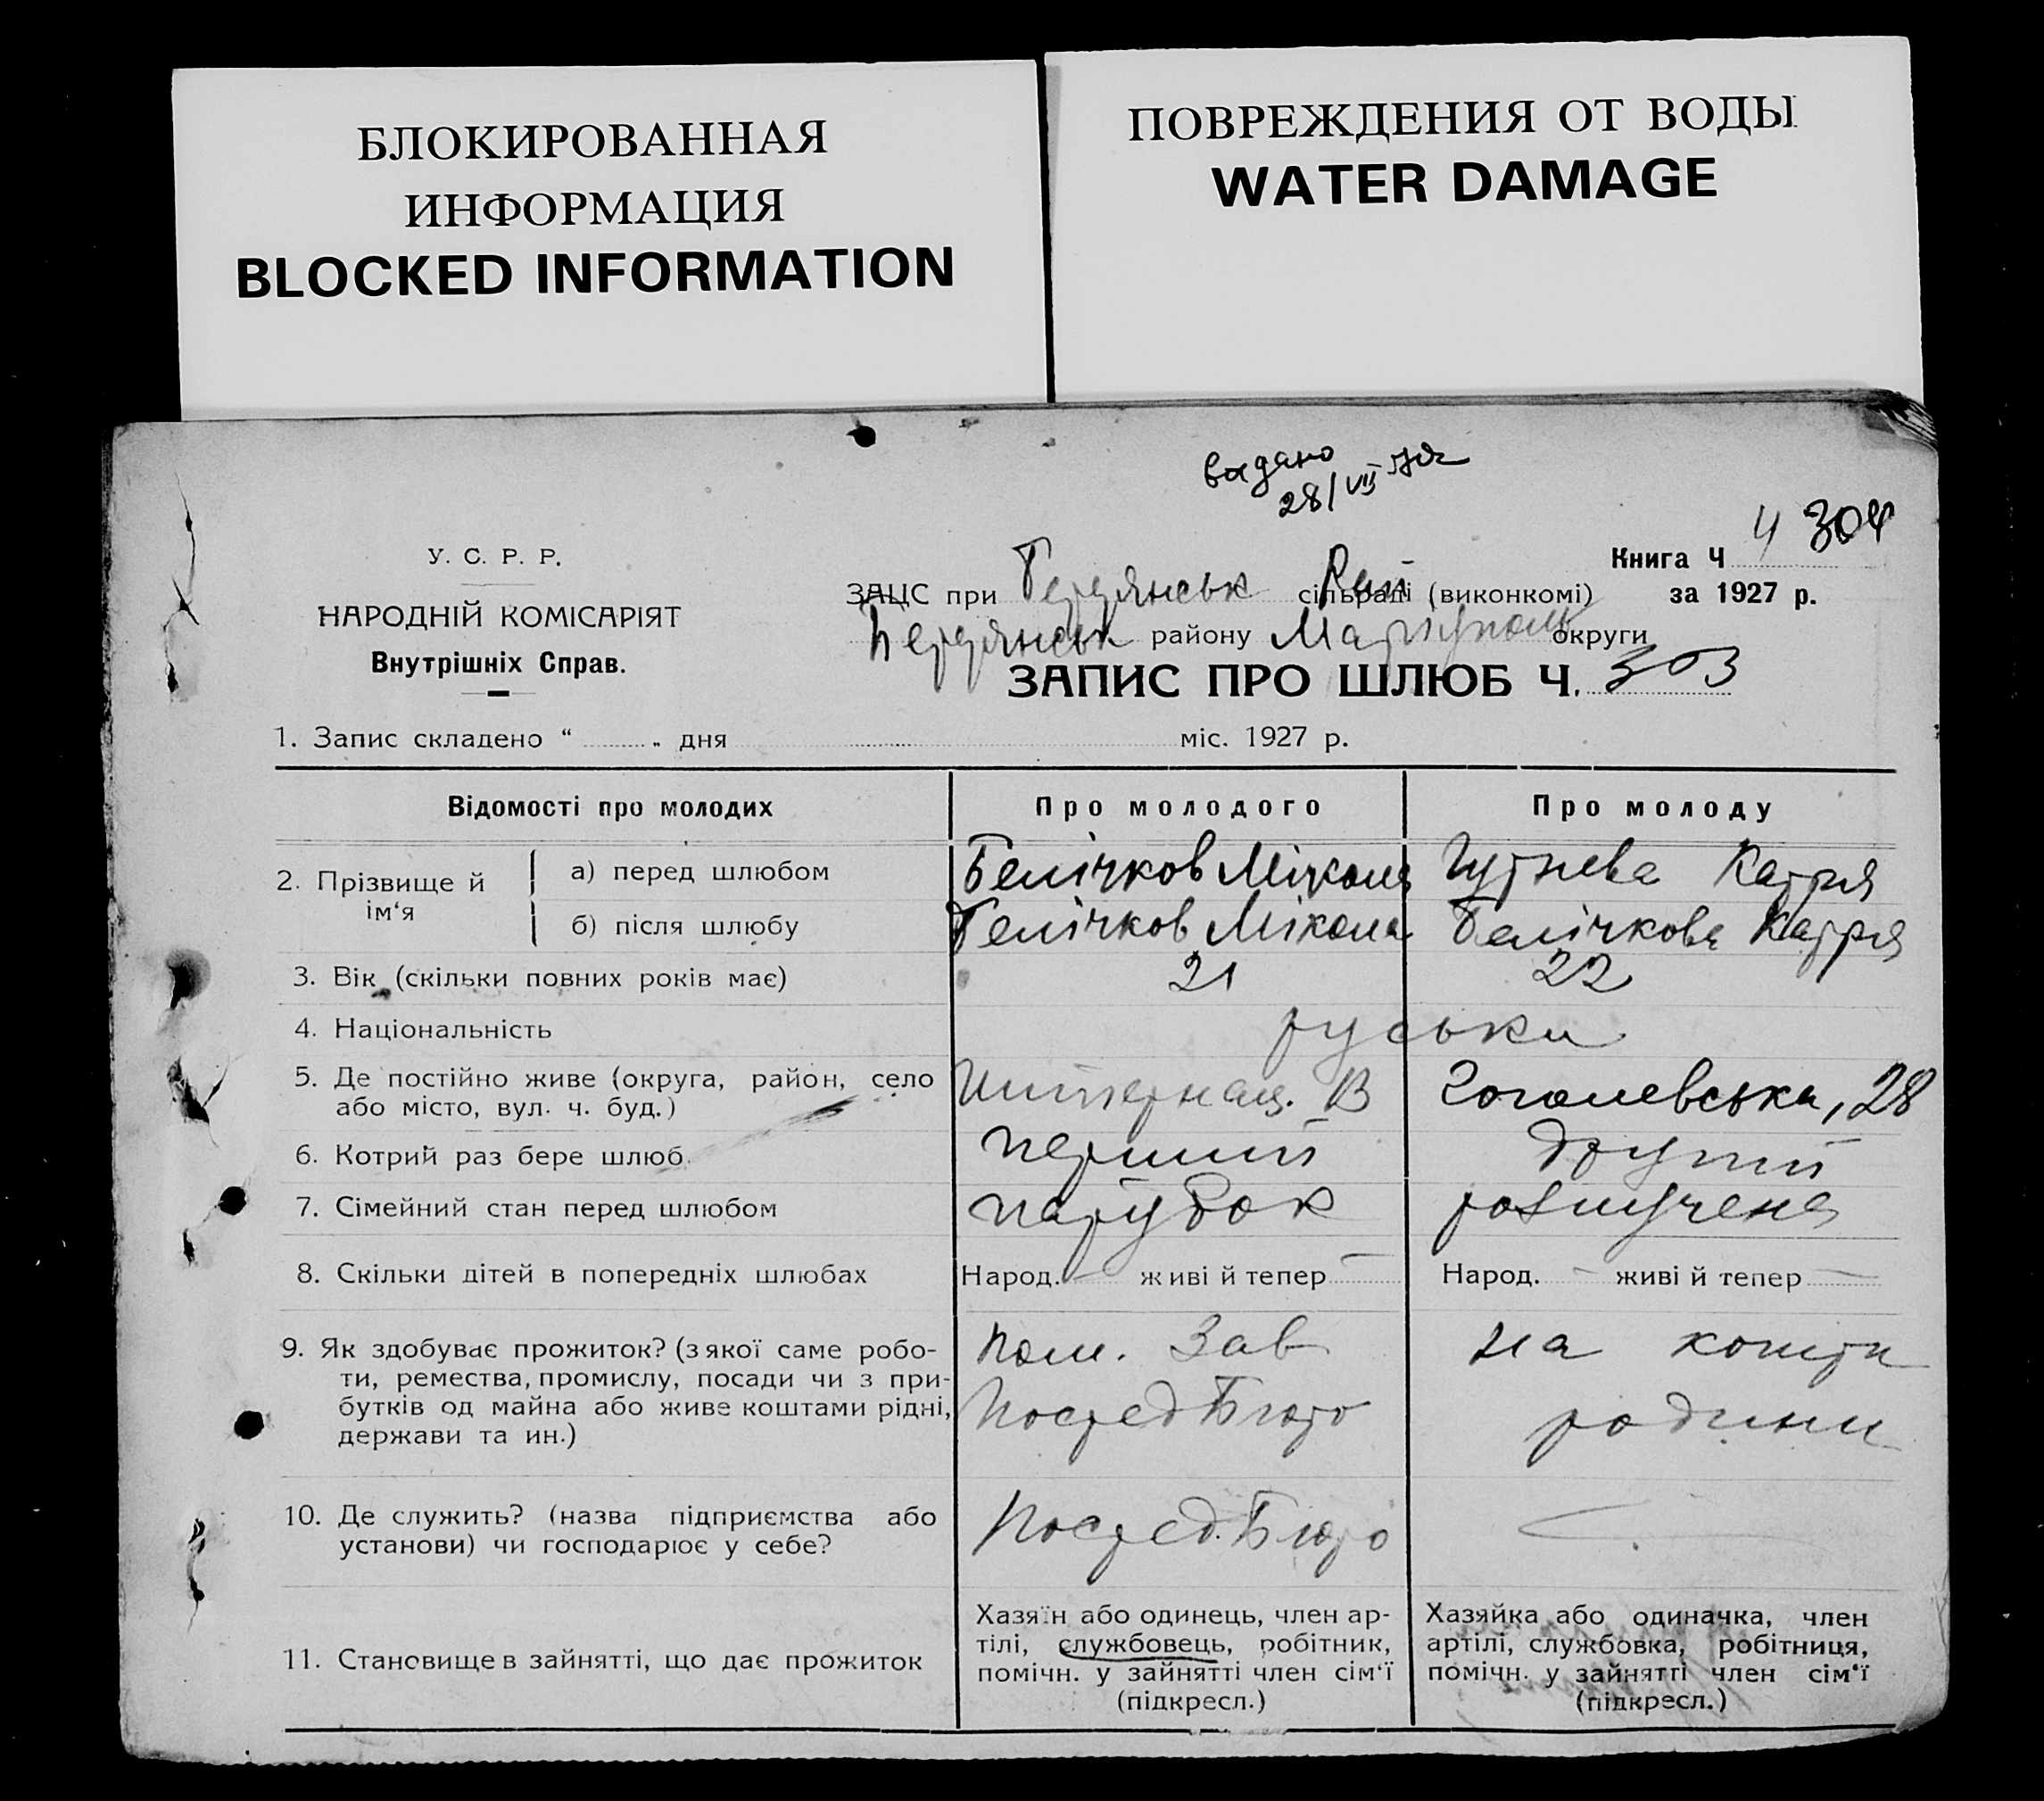 БЛОКИРОВАННАЯ
ИНФОРМАЦИЯ
BLOCKED INFORMATION
ПОВРЕЖДЕНИЯ ОТ ВОДЫ
WATER DAMAGE
видано
28/VII
У. С. Р. Р.
НАРОДНІЙ КОМІСАРІЯТ
Внутрішніх Справ.
Книга Ч 4 304
ЗАЦС при Бердянськ Рай сільраді (виконкомі) за 1927 р.
Бердянськ району Маріуполь округи
ЗАПИС ПРО ШЛЮБ Ч. 303
1. Запис складено “ ........ „ дня ........ міс. 1927 р.
Відомості про молодих Про молодого Про молоду
2. Прізвище й ім‘я
а) перед шлюбом Белічков Мікола Гутнева Катря
б) після шлюбу Белічков Мікола Белічкова Катря
3. Вік (скільки повних років має) 21 22
4. Національність руськи
5. Де постійно живе (округа, район, село Интернац. Гоголевська, 28
або місто, вул. ч. буд.)
6. Котрий раз бере шлюб перший другий
7. Сімейний стан перед шлюбом парубок розлучена
8. Скільки дітей в попередніх шлюбах Народ. — живі й тепер — Народ. — живі й тепер —
9. Як здобуває прожиток? (з якої саме робо- Пом. Зав на кошти
ти, ремества, промислу, посади чи з при-
бутків од майна або живе коштами рідні, Посред Бюро родини
держави та ин.)
10. Де служить? (назва підприємства або Посред. Бюро —
установи) чи господарює у себе?
11. Становище в зайнятті, що дає прожиток
Хазяїн або одинець, член ар-
тілі, службовець, робітник,
помічн. у зайнятті член сім‘ї
(підкресл.)
Хазяйка або одиначка, член
артілі, службовка, робітниця,
помічн. у зайнятті член сім‘ї
(підкресл.)